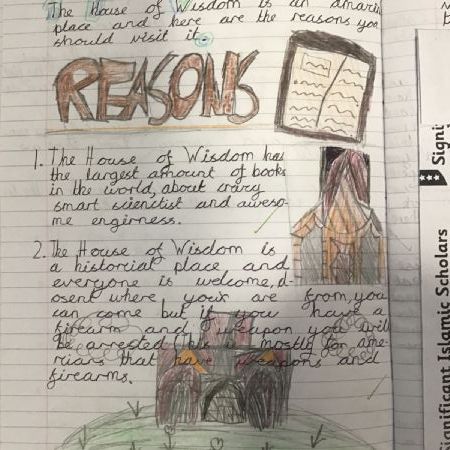 The House of Wisdom is an amazin
place and here are the reasons you
should visit it.
REASONS
1. The House of Wisdom has
the largest amount of books
in the world, about crazy
smart scientist and aweso-
me enginness.
2. The House of Wisdom is
a historial place and
everyone is welcome, d-
osent where your are from, you
can come but if you have a
firearm and weapon you will
be arrested (this is mostly for ame-
rians that have weapons and
firearms.
Signi
ignificant Islamic Scholars